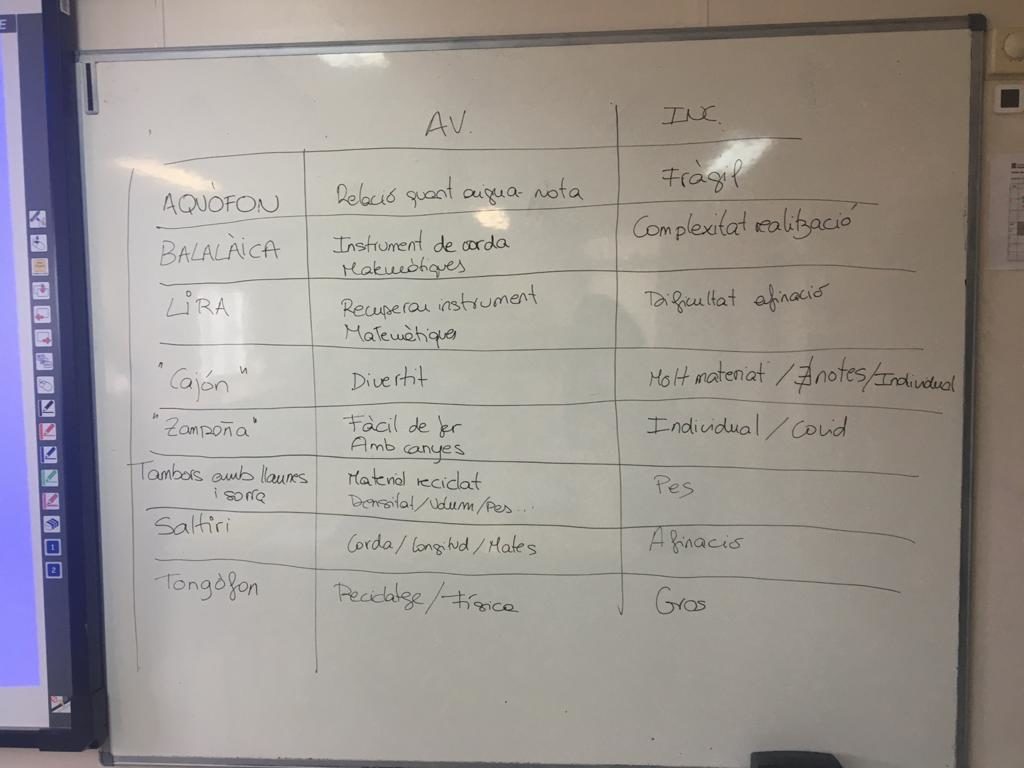 AV. INC.
AQUÒFON Relació quant aigua-nota Fràgil
BALALÀICA Instrument de corda Complexitat realització
Matemàtiques
LIRA Recuperau instrument Dificultat afinació
Matemàtiques
"Cajón" Divertit Molt material / ∄ notes / Individual
"Zampoña" Fàcil de fer Individual / Covid
Amb canyes
Tambors amb llaunes Material reciclat Pes
i sorra Densitat/Volum/Pes...
Saltiri Corda / Longitud / Mates Afinació
Tongòfon Reciclatge / Física Gros
1
2